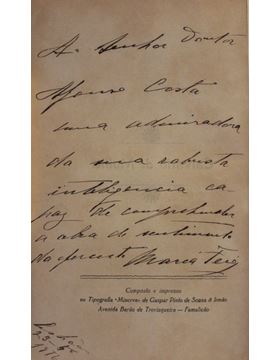 Ao Senhor Doutor
Afonso Costa
uma admiradora
da sua robusta
inteligencia ca-
paz de comprehender
a obra de sentimento
Maria
Composto e impresso
na Tipografia «Minerva» de Gaspar Pinto de Sousa & Irmão
Avenida Barão de Trovisqueira — Famalicão
Lisboa